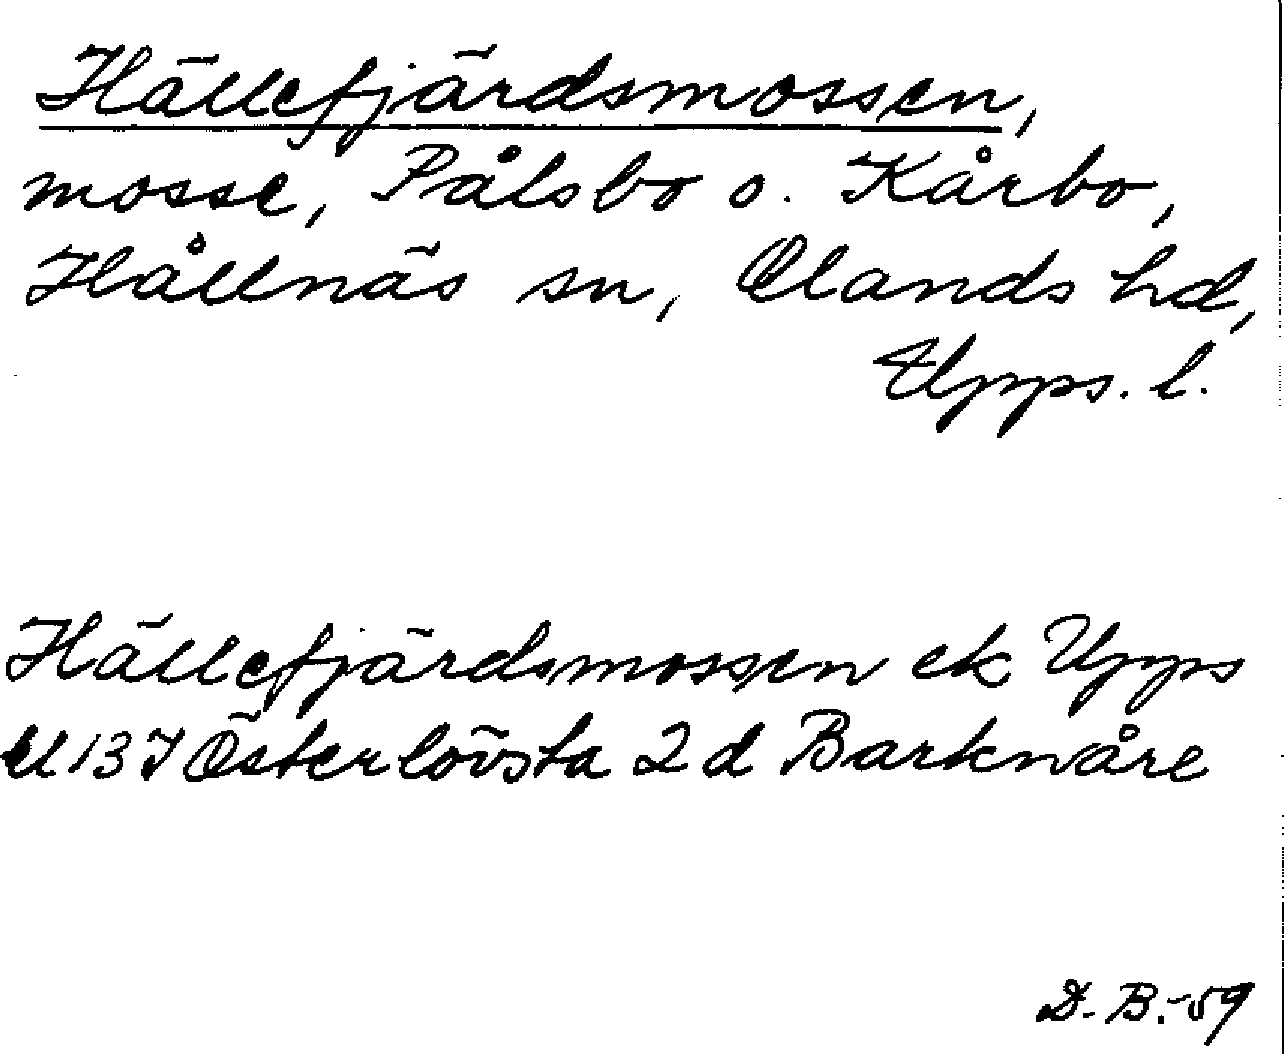 Hällefjärdsmossen,
mosse, Pålsbo o. Kårbo,
Hållnäs sn, Olands hd,
Upps. l.
Hällefjärdsmossen ek Upps
13 I Österlövsta 2 d Barknåre
D. B. -59